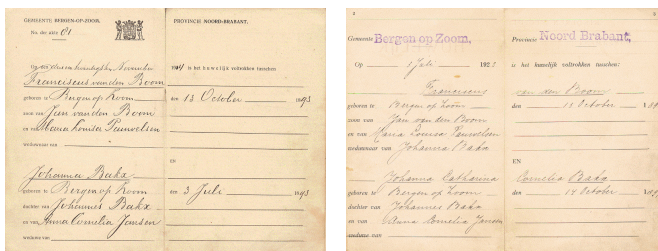 GEMEENTE BERGEN-OP-ZOOM.
PROVINCIE NOORD-BRABANT.
No. der akte 61
Op den November
1919 is het huwelijk voltrokken tusschen
Franciscus van den Boom
geboren te Bergen op Zoom den 13 October 1893
zoon van Jan van den Boom
en van Maria Louisa Pauwelsen
weduwnaar van
EN
Johanna Bakx
geboren te Bergen op Zoom den 3 Juli 1893
dochter van Johannes Bakx
en van Anna Cornelia Janssen
weduwe van
2
3
Gemeente Bergen op Zoom,
Provincie Noord Brabant,
Op 1 Juli 1925 is het huwelijk voltrokken tusschen:
Franciscus van den Boom
geboren te Bergen op Zoom den 13 October
zoon van Jan van den Boom
en van Maria Louisa Pauwelsen
weduwnaar van Johanna Bakx
EN
Johanna Catharina Cornelia Bakx
geboren te Bergen op Zoom den 14 October
dochter van Johannes Bakx
en van Anna Cornelia Jansen
weduwe van